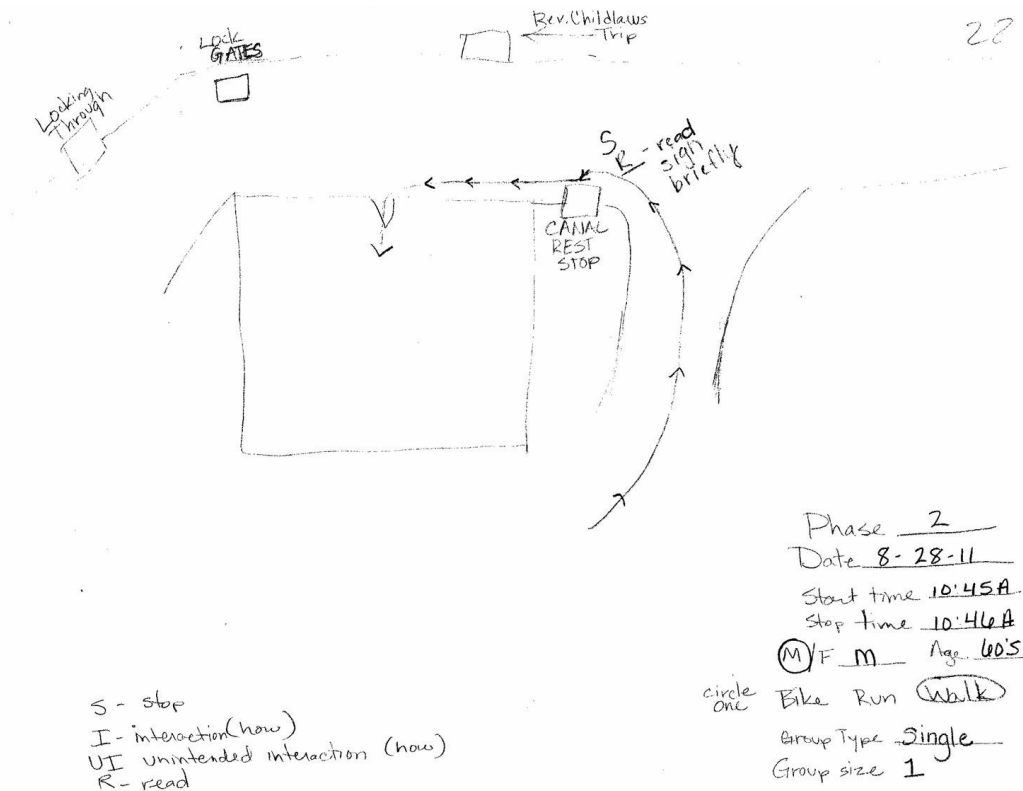 22
Rev. Childlaws
Trip
Lock
GATES
Locking
Through
S
R - read
sign
briefly
CANAL
REST
STOP
Phase 2
Date 8-28-11
Start time 10:45A
Stop time 10:46A
M/F M Age 60's
circle
one
Bike Run Walk
Group Type Single
Group size 1
S - stop
I - interaction (how)
UI unintended interaction (how)
R - read